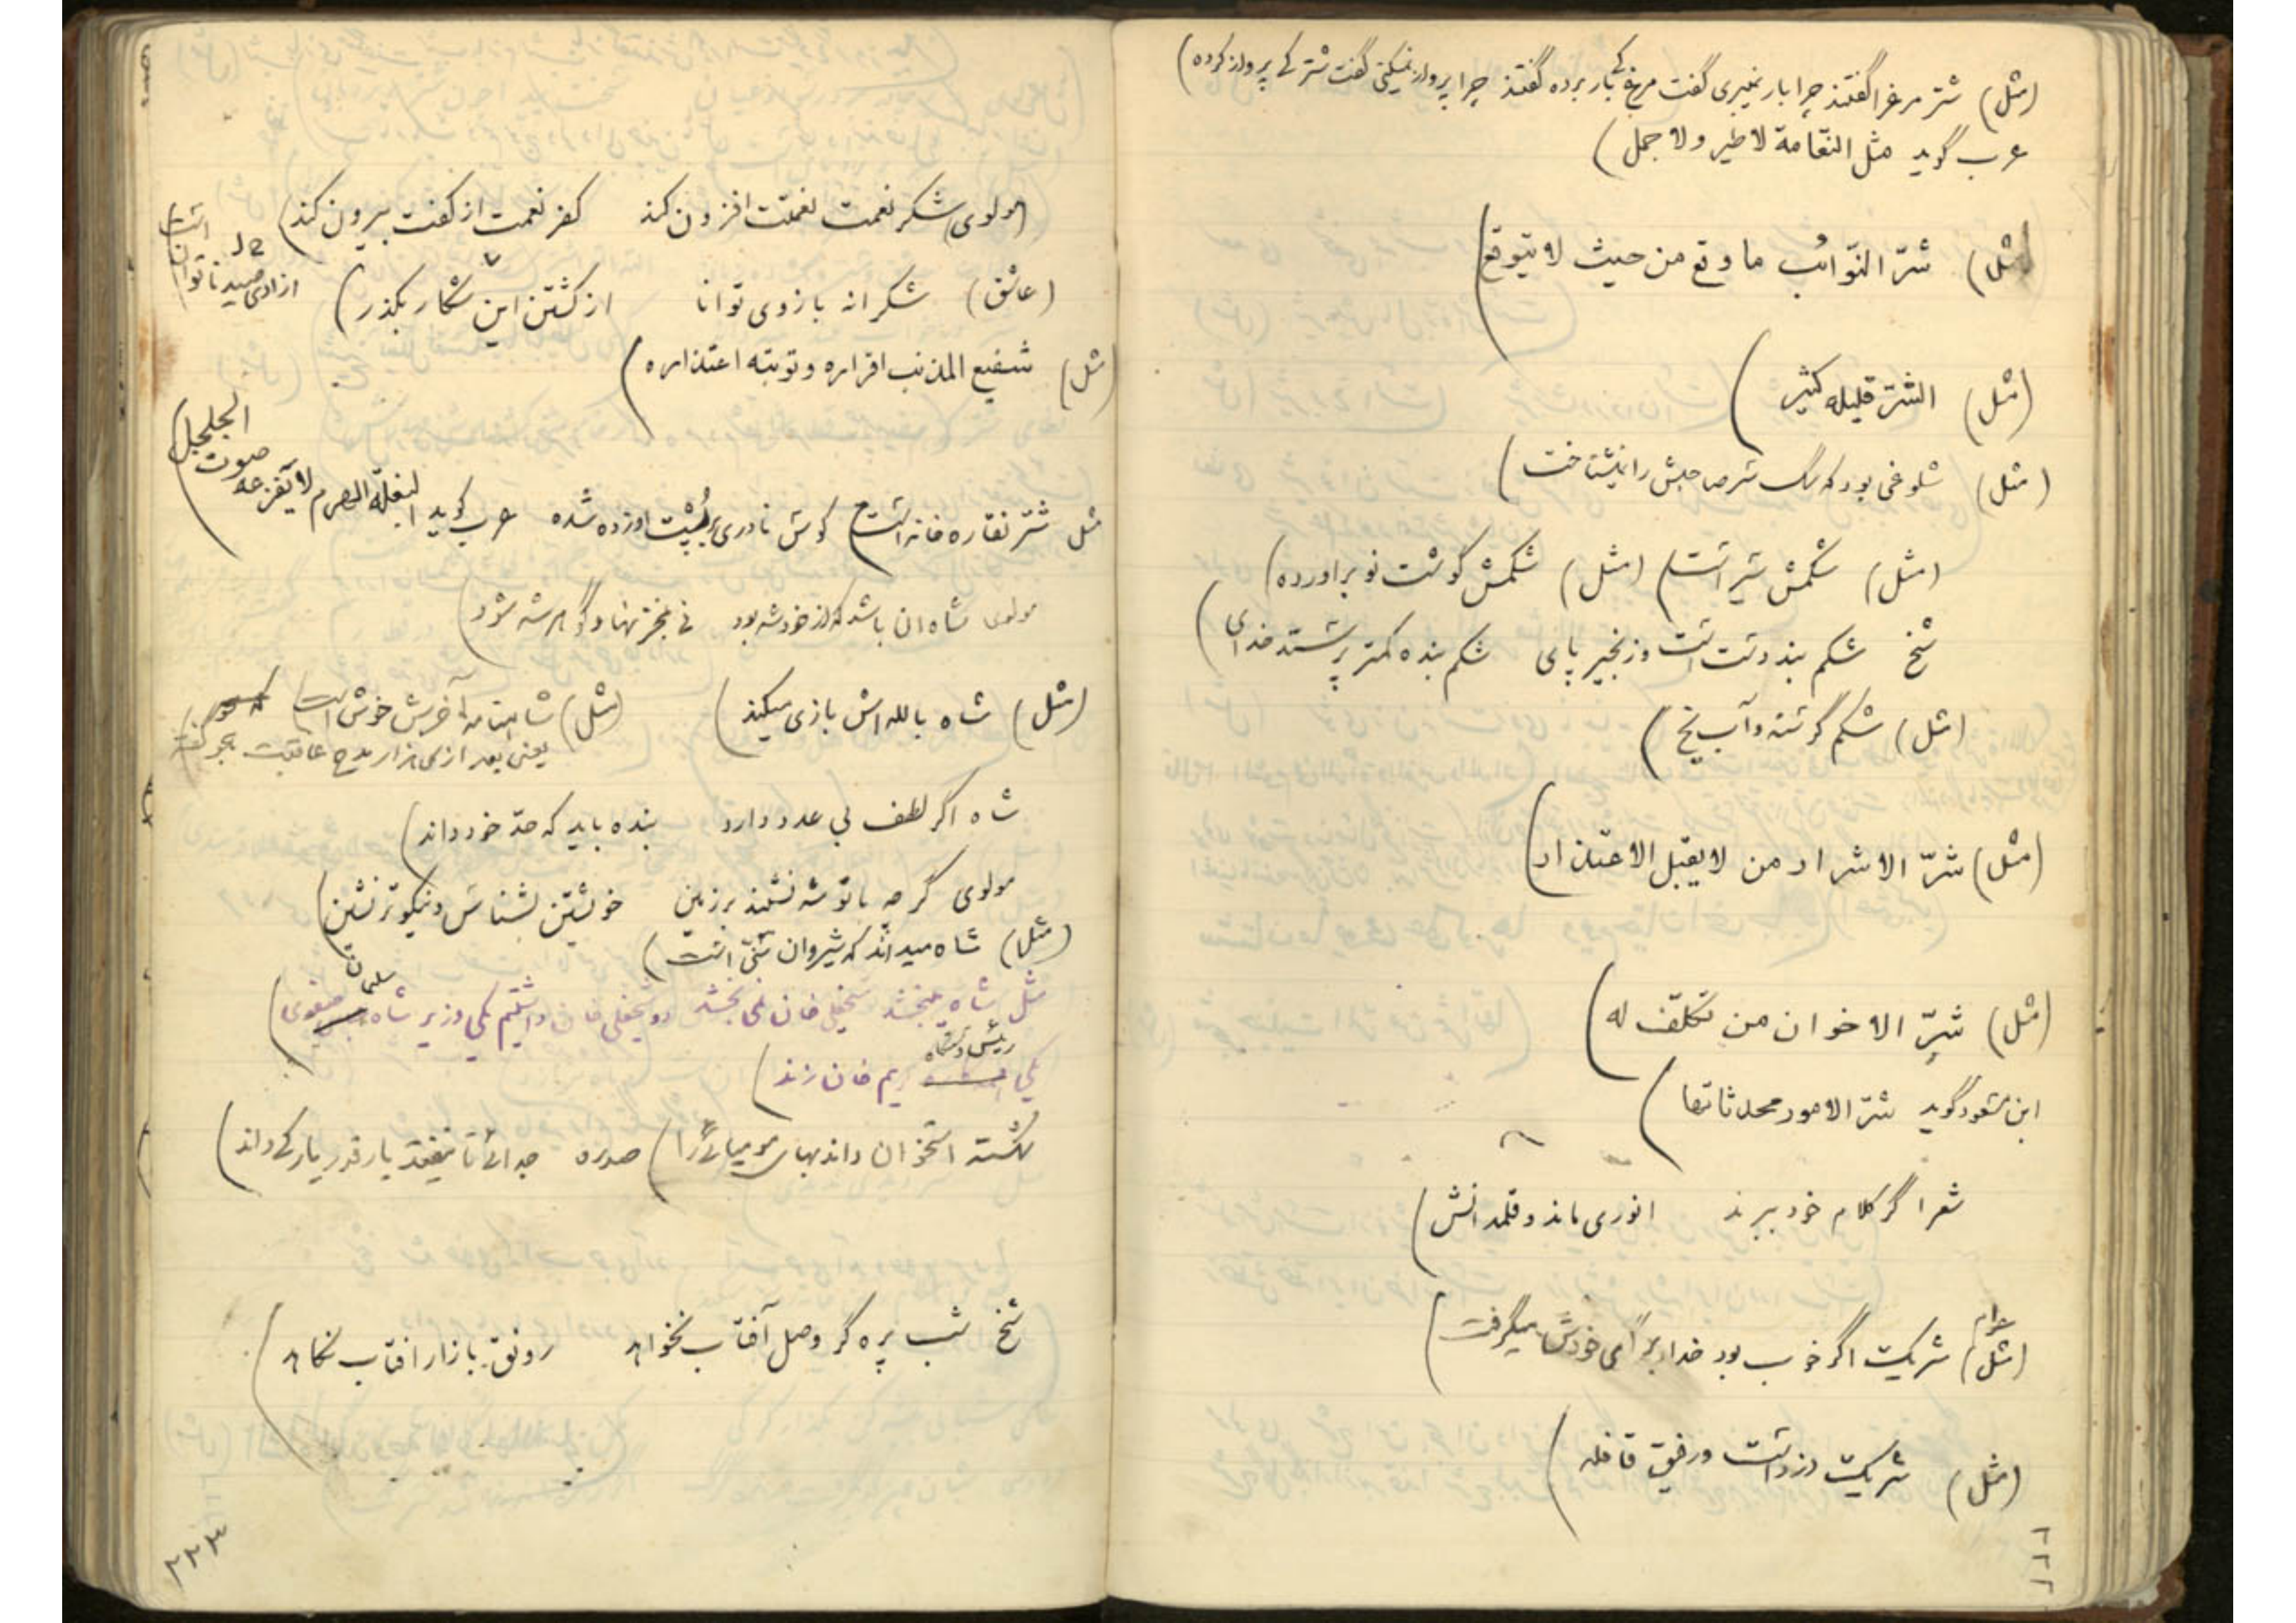 (مثل) شتر مرغ را گفتند چرا بار نمیبری گفت مرغ کی بار برده گفتند چرا پرواز نمیکنی گفت شتر کی پرواز کرده)
عرب گوید مثل النّعامة لا طیر ولا جمل)
(مثل) شرّ النّوائب ما وقع من حیث لا یتوقع)
(مثل) الشرّ قلیله کثیر)
(مثل) شلوغی بود که سگ صاحبش را نمیشناخت)
(مثل) شکمش سیر است) (مثل) شکمش گوشت نو برآورده)
شیخ شکم بند دست است و زنجیر پای شکم بنده کمتر پرستد خدای)
(مثل) شکم گرسنه و آب یخ)
(مثل) شرّ الاشرار من لا یقبل الاعتذار)
(مثل) شرّ الاخوان من تکلّف له)
ابن مسعود گوید شرّ الامور محدثاتها)
شعرا گر کلام خود ببرند انوری ماند و قلمدانش)
(مثل) عوام شریک اگر خوب بود خدا برای خودش میگرفت)
(مثل) شریک دزد است و رفیق قافله)
۲۲۲
(مولوی) شکر نعمت نعمتت افزون کند کفر نعمت از کفت بیرون کند)
(عاشق) شکرانه بازوی توانا از کشتن این شکار بگذر)
آزادی صید ناتوان است)
(مثل) شفیع المذنب اقراره وتوبته اعتذاره)
مثل شتر نقاره خانه است) کوس نادری بر پشت او زده شده عرب گوید البغلة الهرم لا یفزعه صوت الجلجل)
مولوی شاه آن باشد که از خود شه بود نی بمخزنها و گوهر شه شود)
(مثل) شاه با لله اش بازی میکند) (مثل) شاهنامه آخرش خوش است)
یعنی بعد از هزار مدح عاقبت هجو گفته
شاه اگر لطف بی عدد دارد بنده باید که حدّ خود داند)
مولوی گرچه با تو شه نشیند بر زمین خویشتن بشناس و نیکوتر نشین)
(مثل) شاه میداند که شیروان سنّی است)
مثل شاه میبخشد شیخعلی خان نمی بخشد دو شیخعلی خان داشتیم یکی وزیر شاه سلیمان صفوی)
یکی رئیس دستگاه کریم خان زند)
شکسته استخوان داند بهای مومیائی را) صدره جدائی تا نیفتد یار قدر یار کی داند)
شیخ شب پره گر وصل آفتاب نخواهد رونق بازار آفتاب نکاهد)
۲۲۳